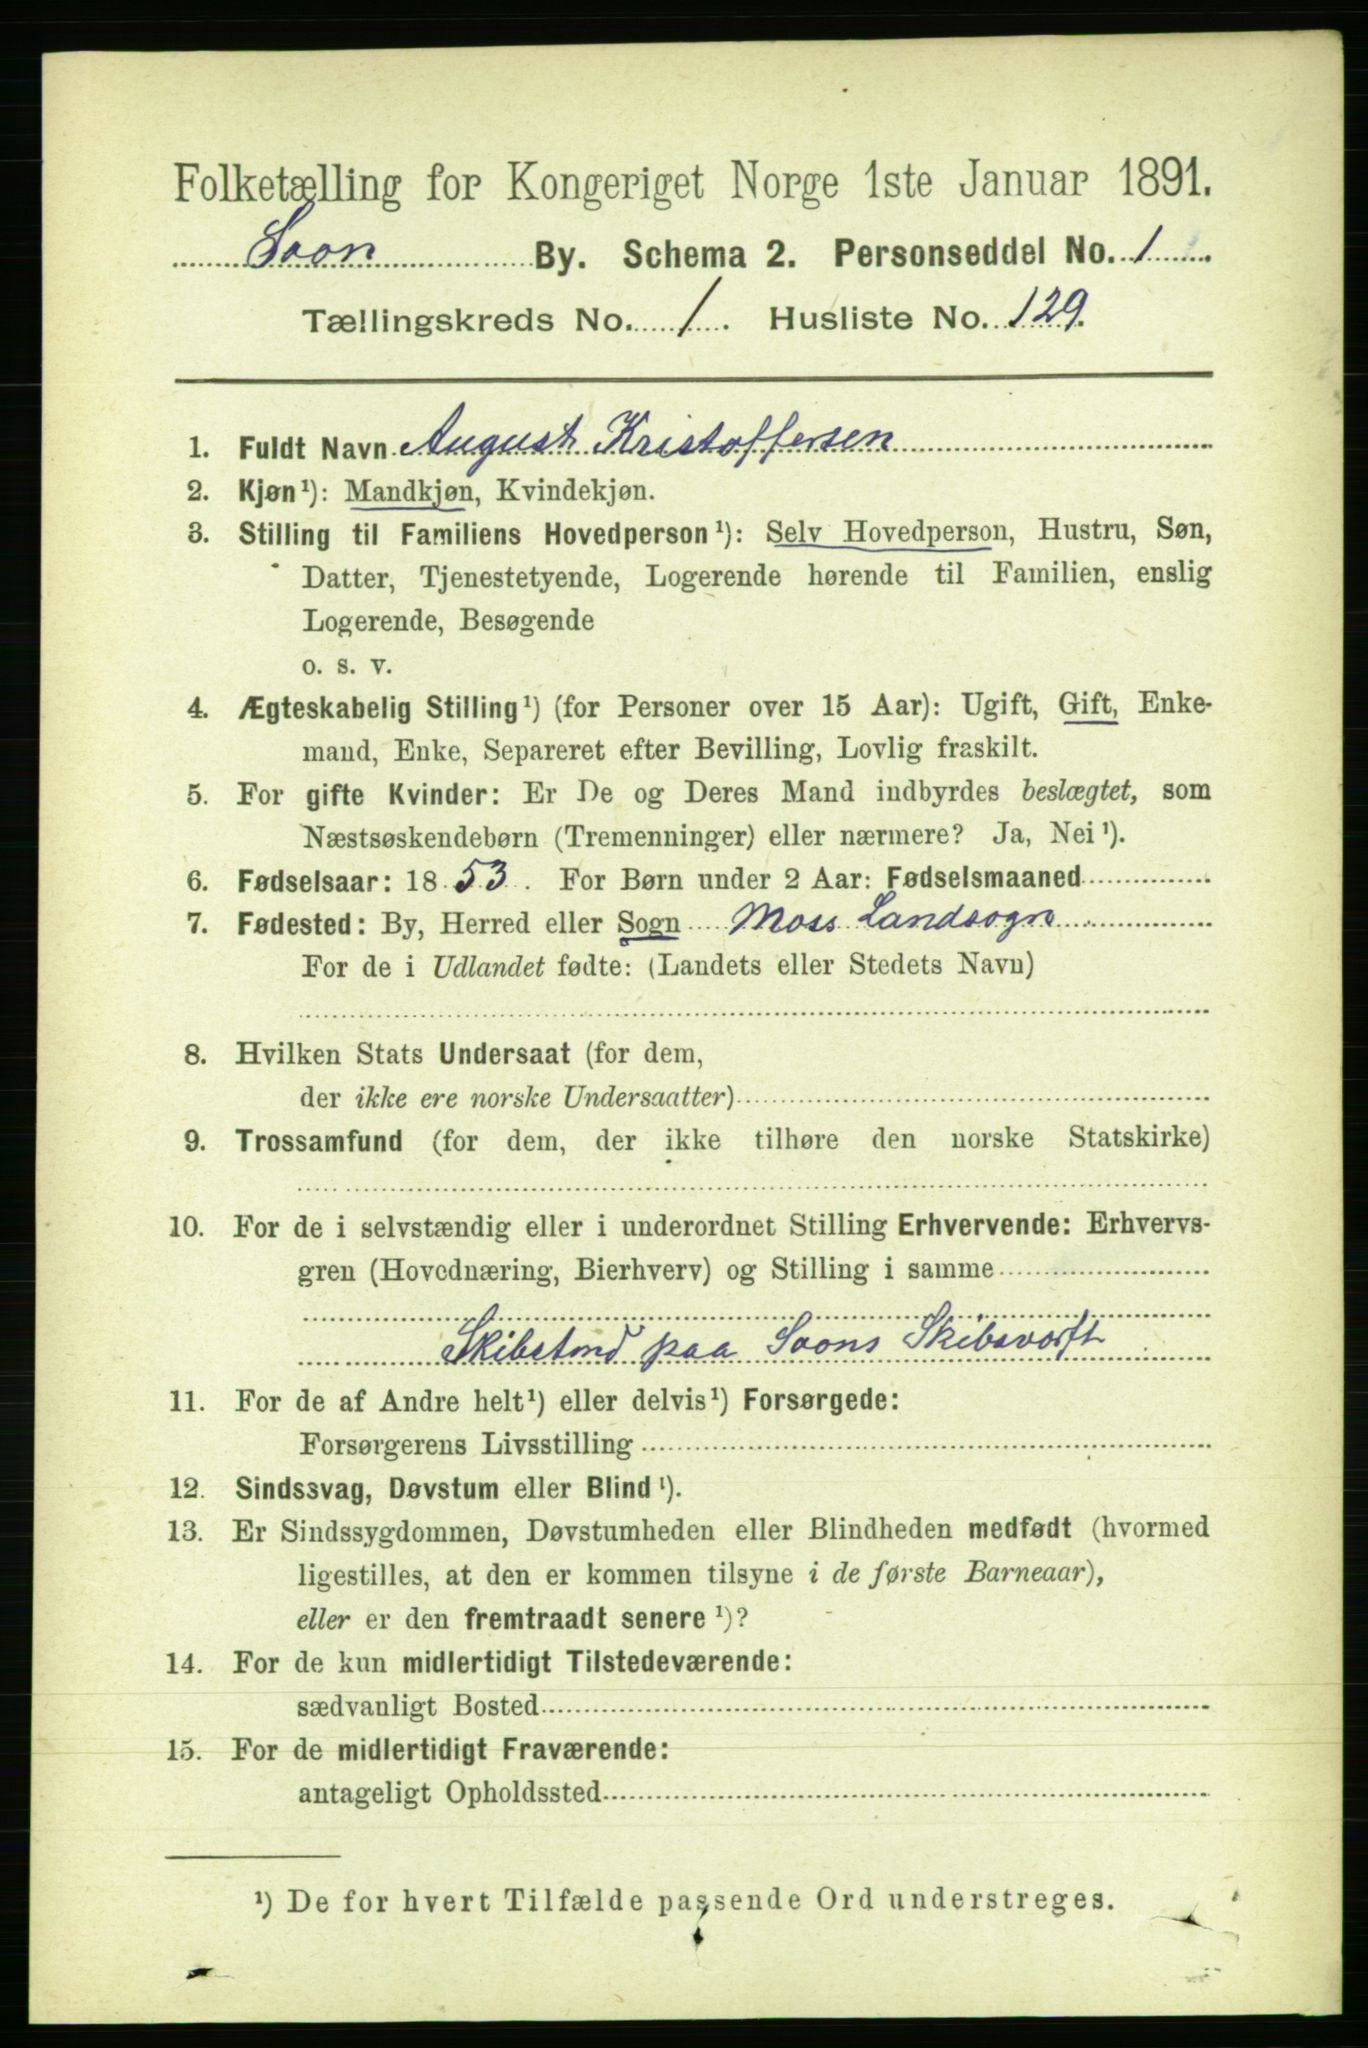 Folketælling for Kongeriget Norge 1ste Januar 1891.
Soon By. Schema 2. Personseddel No. 1
Tællingskreds No. 1. Husliste No. 129.
1. Fuldt Navn August Kristoffersen
2. Kjøn¹): Mandkjøn, Kvindekjøn.
3. Stilling til Familiens Hovedperson¹): Selv Hovedperson, Hustru, Søn,
Datter, Tjenestetyende, Logerende hørende til Familien, enslig
Logerende, Besøgende
o. s. v.
4. Ægteskabelig Stilling¹) (for Personer over 15 Aar): Ugift, Gift, Enke-
mand, Enke, Separeret efter Bevilling, Lovlig fraskilt.
5. For gifte Kvinder: Er De og Deres Mand indbyrdes beslægtet, som
Næstsøskendebørn (Tremenninger) eller nærmere? Ja, Nei¹).
6. Fødselsaar: 1853. For Børn under 2 Aar: Fødselsmaaned
7. Fødested: By, Herred eller Sogn Moss Landsogn
For de i Udlandet fødte: (Landets eller Stedets Navn)
8. Hvilken Stats Undersaat (for dem,
der ikke ere norske Undersaatter)
9. Trossamfund (for dem, der ikke tilhøre den norske Statskirke)
10. For de i selvstændig eller i underordnet Stilling Erhvervende: Erhvervs-
gren (Hovednæring, Bierhverv) og Stilling i samme
paa Soons Skibsværft
11. For de af Andre helt¹) eller delvis¹) Forsørgede:
Forsørgerens Livsstilling
12. Sindssvag, Døvstum eller Blind¹).
13. Er Sindssygdommen, Døvstumheden eller Blindheden medfødt (hvormed
ligestilles, at den er kommen tilsyne i de første Barneaar),
eller er den fremtraadt senere¹)?
14. For de kun midlertidigt Tilstedeværende:
sædvanligt Bosted
15. For de midlertidigt Fraværende:
antageligt Opholdssted
¹) De for hvert Tilfælde passende Ord understreges.